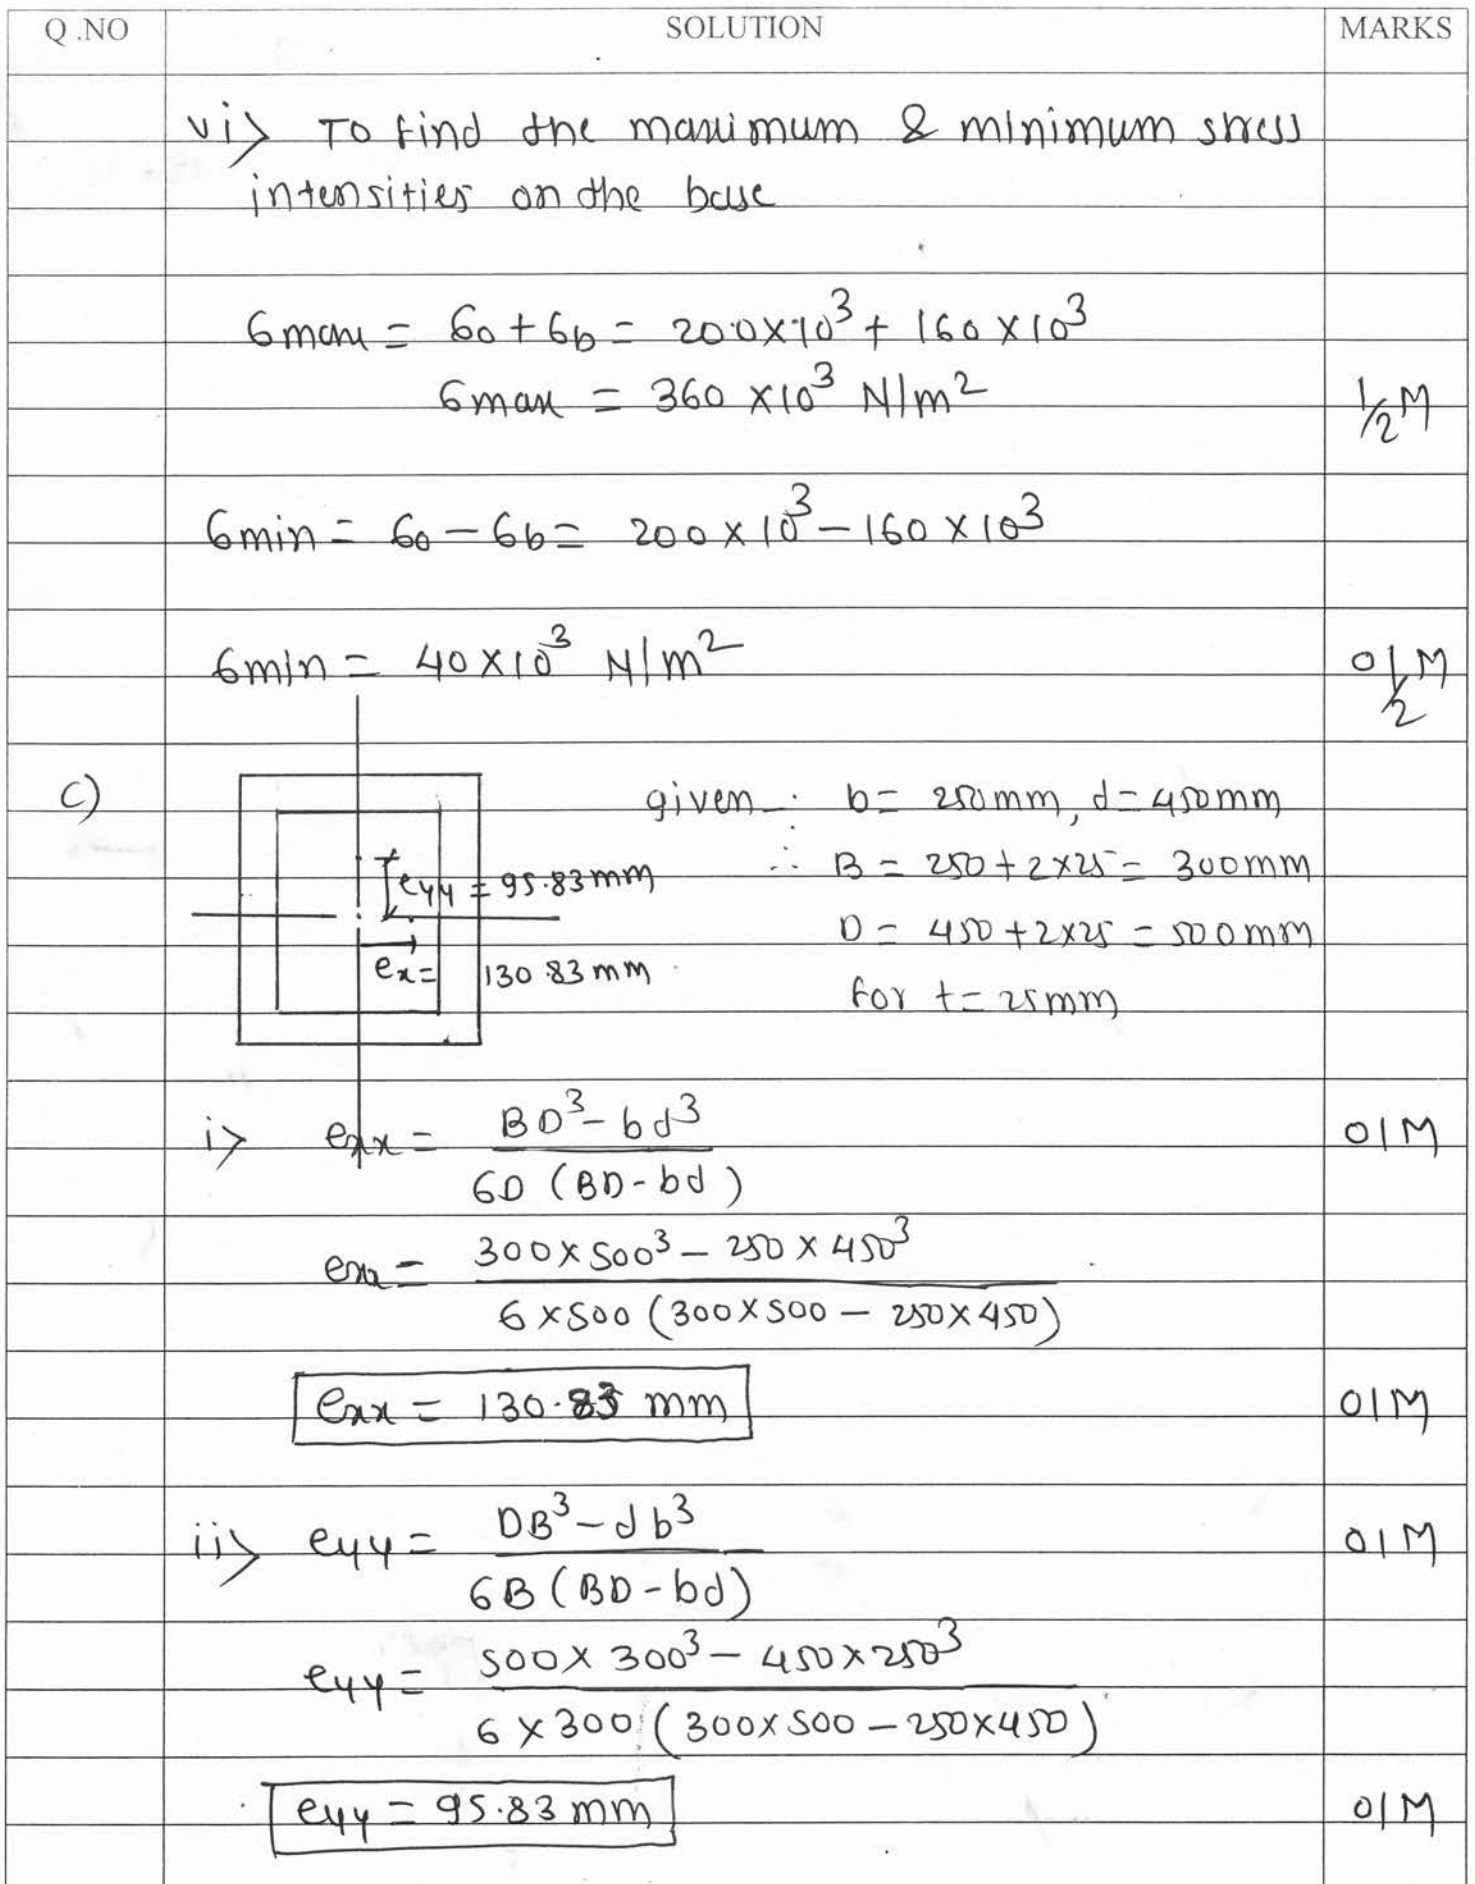 Q.NO SOLUTION MARKS
vi> To find the maximum & minimum stress
intensities on the base
σmax = σo + σb = 200×10³ + 160×10³
σmax = 360×10³ N/m² ½M
σmin = σo − σb = 200×10³ − 160×10³
σmin = 40×10³ N/m² 01/2 M
c) given :- b = 250mm, d = 450mm
∴ B = 250+2×25 = 300mm
D = 450+2×25 = 500mm
for t = 25mm
eyy = 95.83mm
ex = 130.83mm
i> exx = BD³ − bd³ 01M
6D (BD − bd)
exx = 300×500³ − 250×450³
6×500 (300×500 − 250×450)
exx = 130.83 mm 01M
ii> eyy = DB³ − db³ 01M
6B (BD − bd)
eyy = 500×300³ − 450×250³
6×300 (300×500 − 250×450)
eyy = 95.83mm 01M